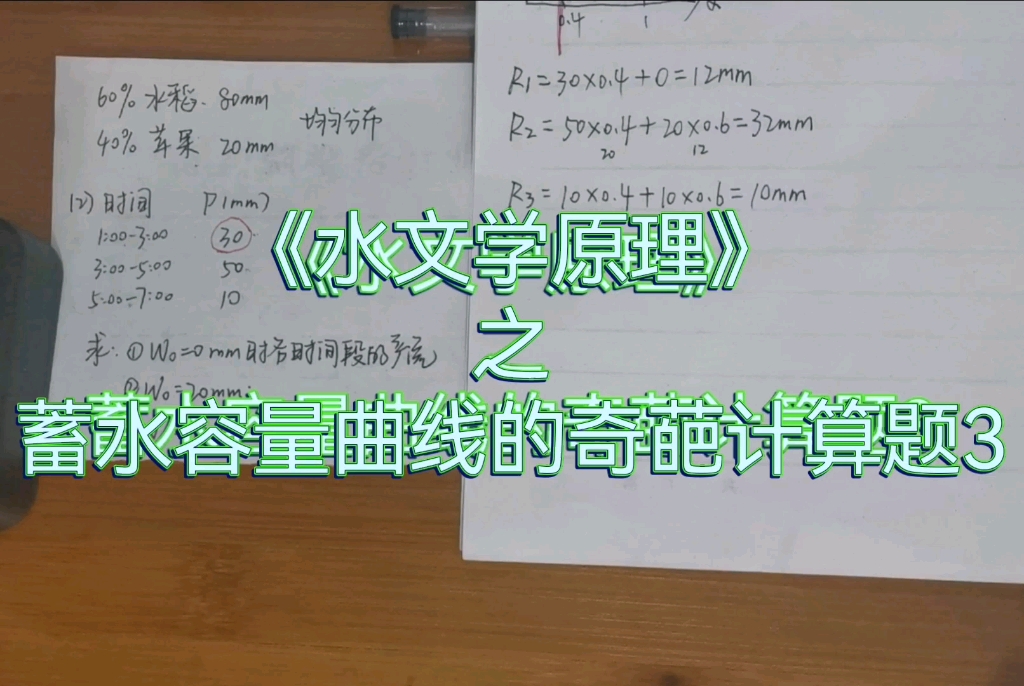 60% 水稻. 80mm
40% 苹果 20mm
均匀分布
(2) 时间 P(mm)
1:00-3:00 30
3:00-5:00 50
5:00-7:00 10
求: ① W₀=0mm时各时间段的产流
② W₀=20mm
0.4 1 α
R₁=30×0.4+0=12mm
R₂=50×0.4+20×0.6=32mm
20 12
R₃=10×0.4+10×0.6=10mm
《水文学原理》
之
蓄水容量曲线的奇葩计算题3